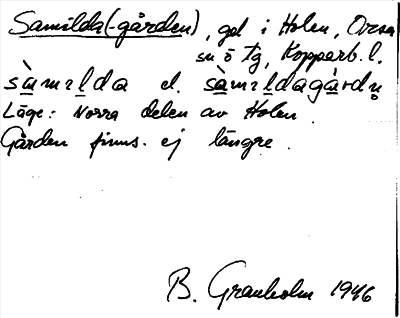 Samilda(-gården), gd i Holen, Orsa
sn ö tg, Kopparb. l.
sàmɪlda el. sàmɪldagàrdn̥
Läge: Norra delen av Holen.
Gården finns. ej längre.
B. Granholm 1946